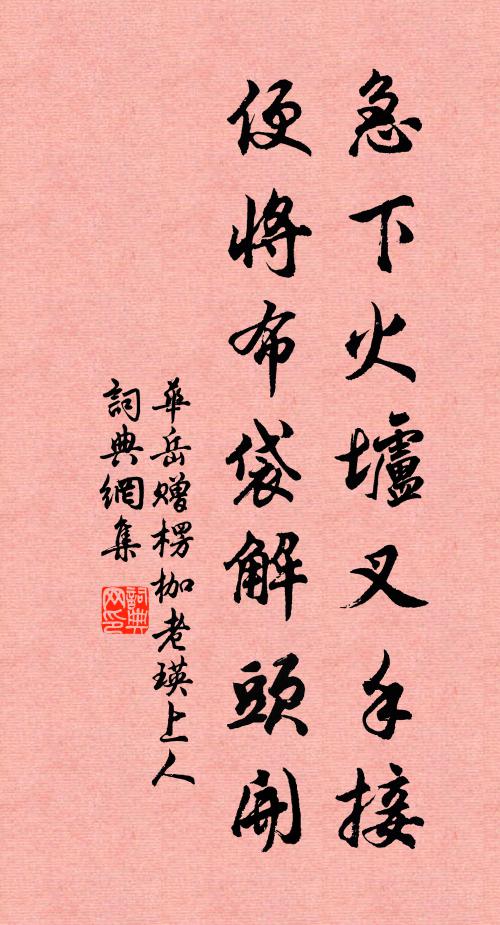 急下火壚叉手接
便將布袋解頭開
華岳贈楞枷老瑛上人
詞典網集
詞典网印